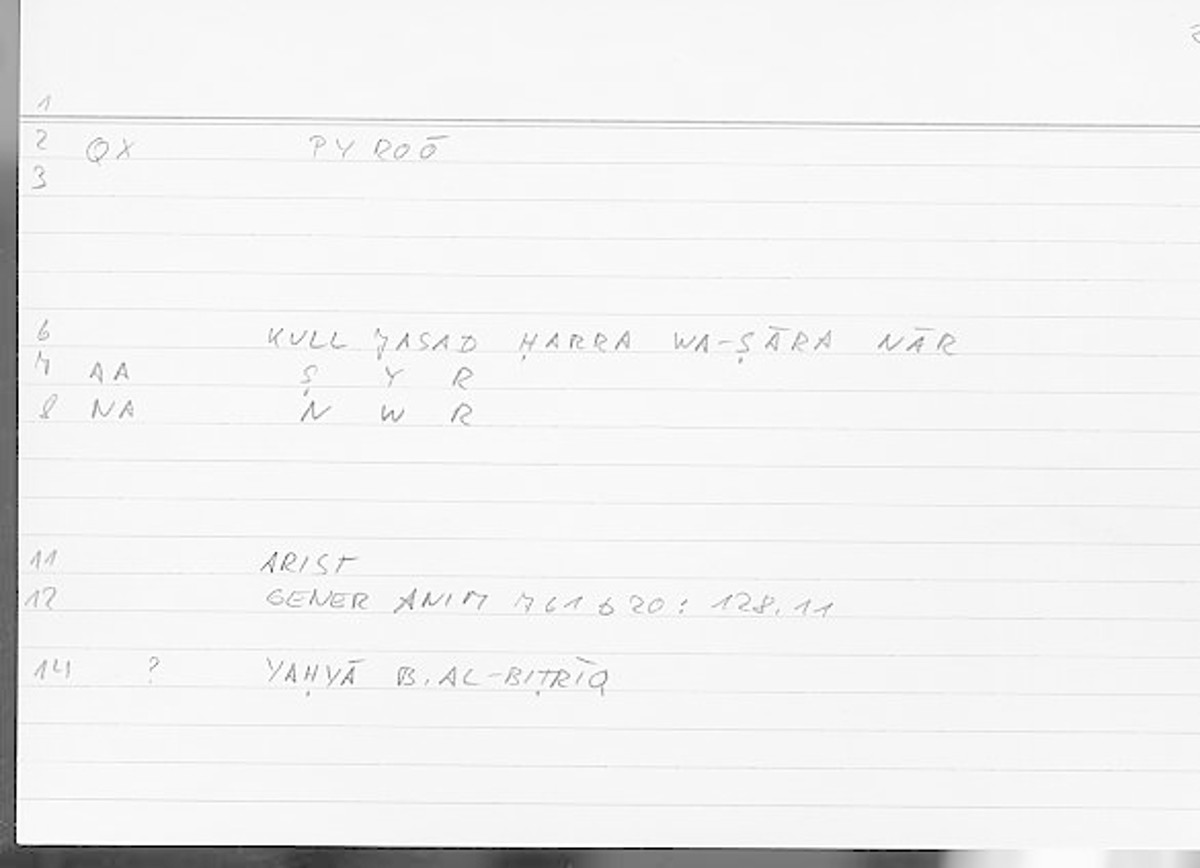 1
2 QX PYROŌ
3
6 KULL ǦASAD ḤARRA WA-ṢĀRA NĀR
7 AA Ṣ Y R
8 NA N W R
11 ARIST
12 GENER ANIM 761 b 20 : 128.11
14 ? YAḤYĀ B. AL-BIṬRĪQ